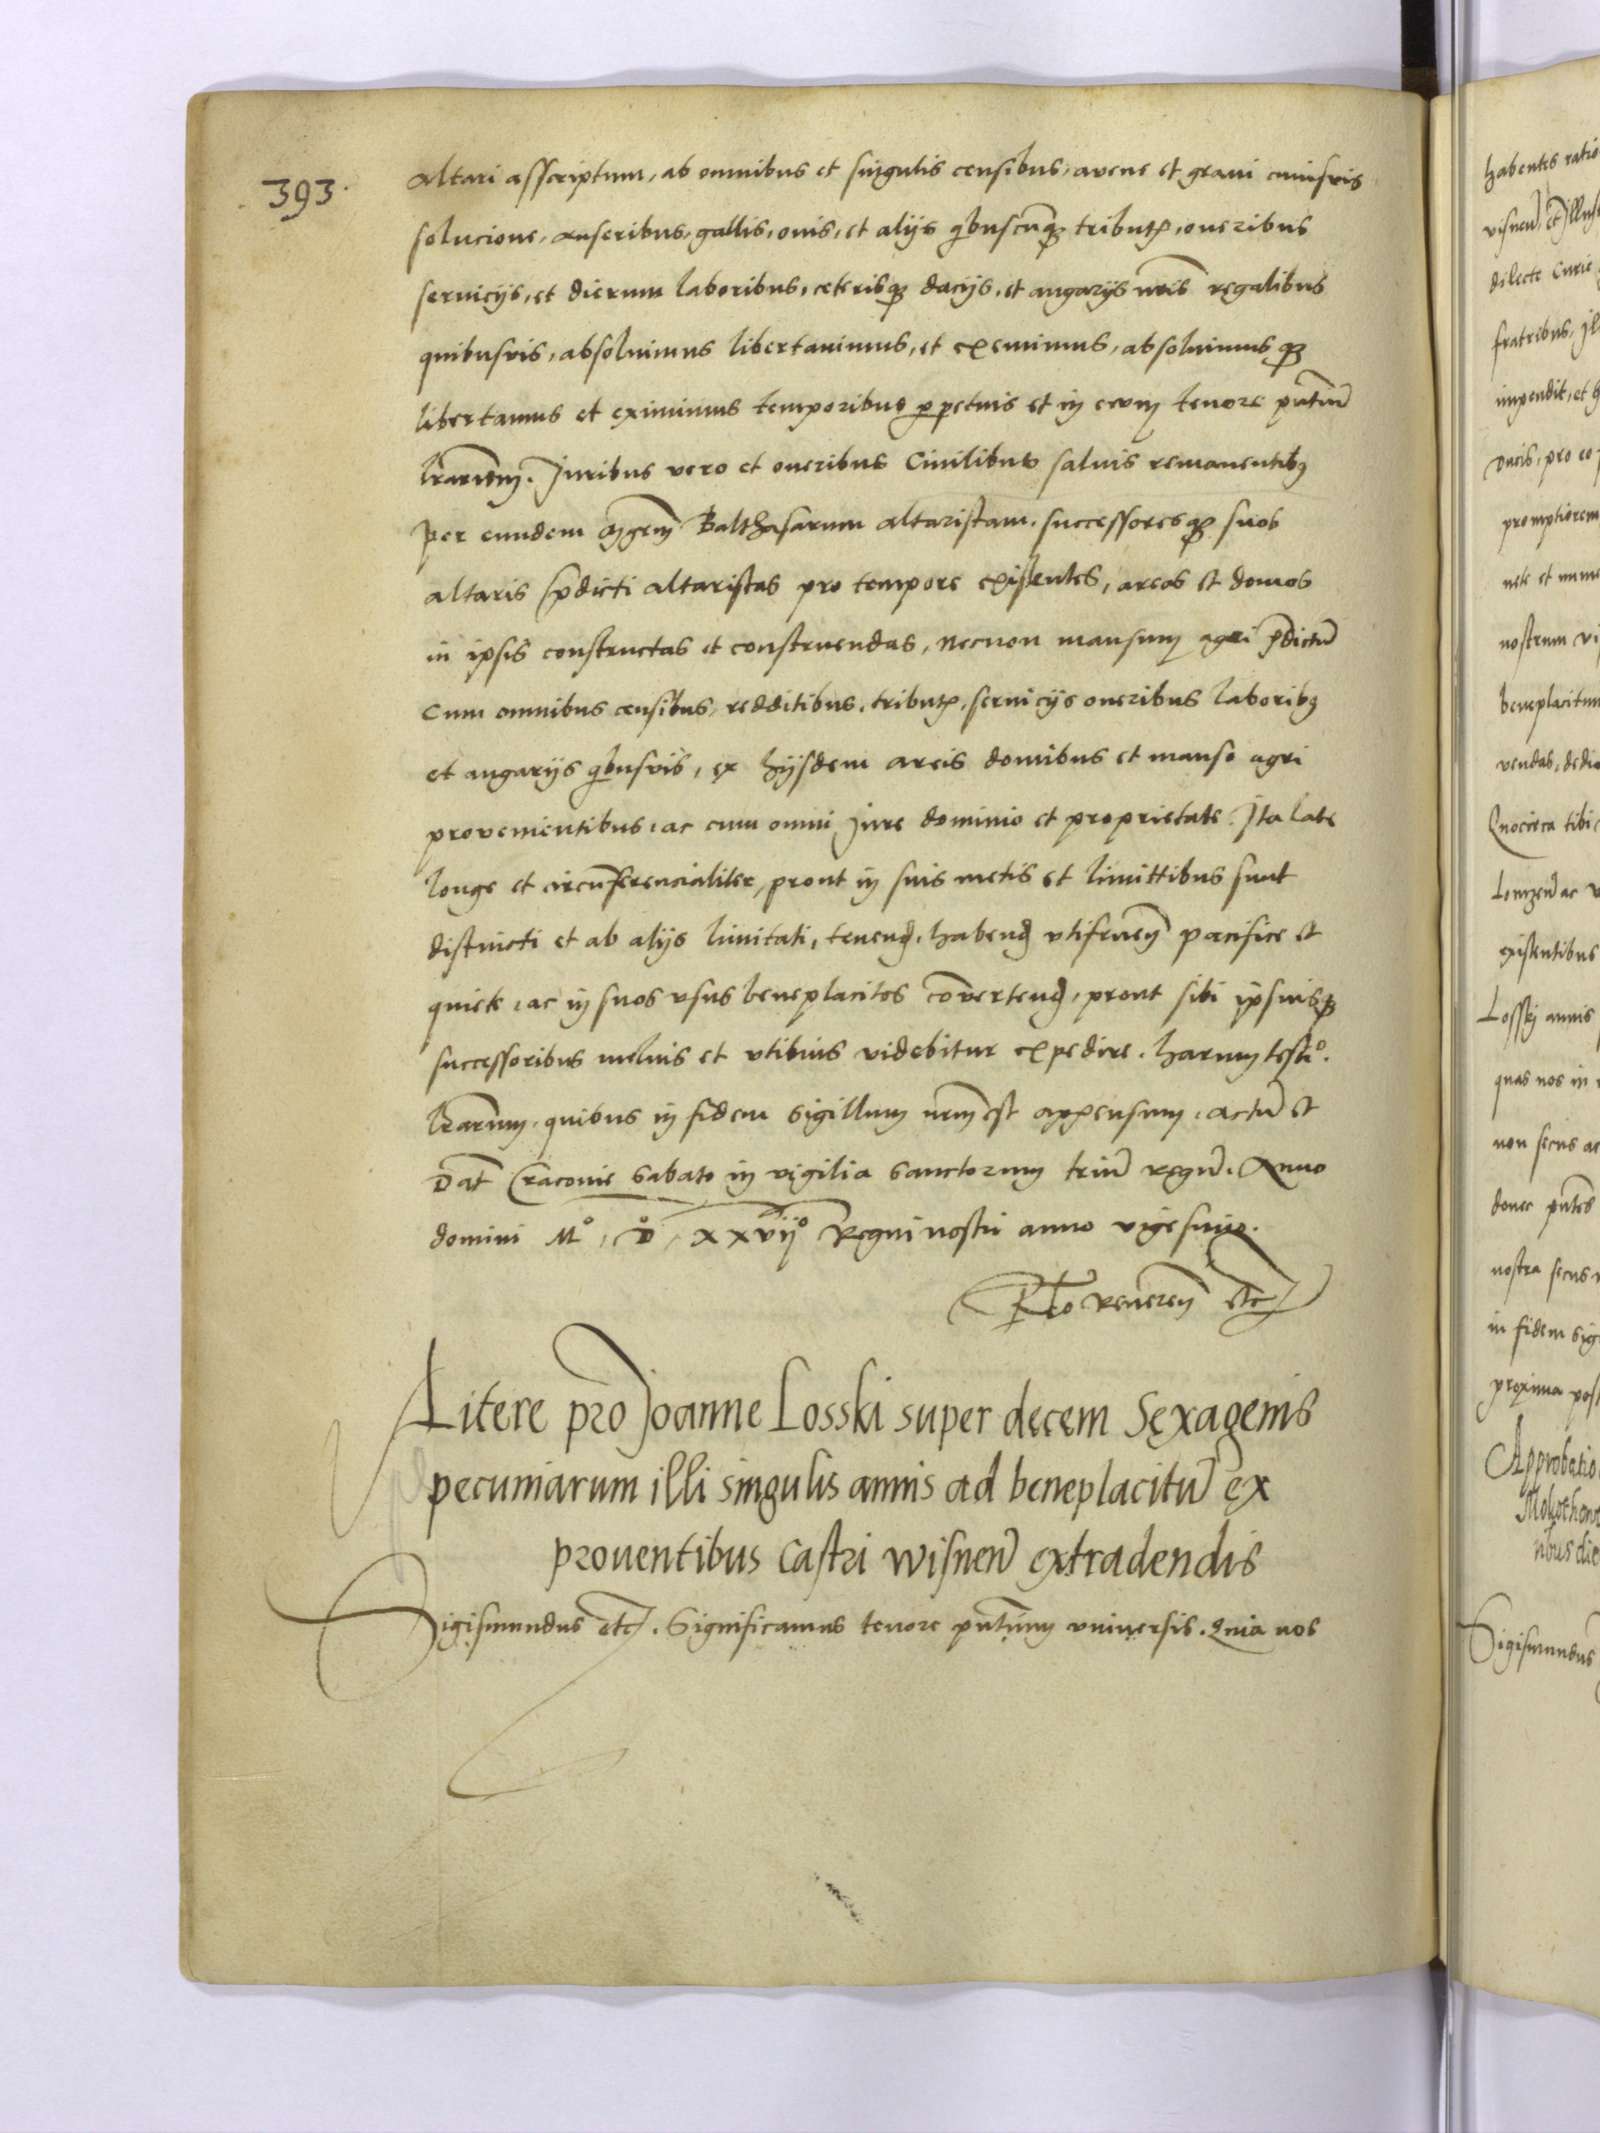 393.
altari asscriptum, ab omnibus et singulis censibus, avene et grani cuiusvis
solucione, anseribus, gallis, ovis, et alijs qbuscūqȝ tributꝭ, oneribus
servicijs, et dierum laboribus, ceterisqȝ dacijs, et angarijs nr̄is regalibus
quibusvis, absolvimus libertavimus, et exemimus, absolvimusqȝ
libertamus et eximimus temporibus ꝑpetuis et in evum tenore pn̄tiū
lr̄arum. Juribus vero et oneribus Civilibus salvis remanentibȝ
per eundem mgr̄m Balthasarum altaristam, successoresqȝ suos
altaris p̄dicti altaristas pro tempore existentes, areas et domos
in ipsis constructas et construendas, necnon mansum agri p̄dictū
cum omnibus censibus, redditibus, tributꝭ, servicijs oneribus laboribȝ
et angarijs qbusvis, ex hijsdem areis domibus et manso agri
provenientibus, ac cum omni Jure dominio et proprietate. Ita late
longe et circūferencialiter, prout in suis metis et limittibus sunt
distincti et ab alijs limitati, tenend, habend utifruen̄ pacifice et
quiete, ac in suos usus beneplacitos cōvertend, prout sibi ipsiusqȝ
successoribus melius et utilius videbitur expedire. harum testio.
lr̄arum, quibus in fidem sigillum nr̄m est appensum. actū et
Dat̄ Cracovie sabato in vigilia sanctorum triū regū. Anno
domini Mo. Do. xxvijo Regni nostri anno vigesimo.
Rlo reveren̄ etc
Litere pro Joanne Losski super decem Sexagenis
pecuniarum illi singulis annis ad beneplacitū ex
proventibus castri wisnen̄ extradendis
Sigismundus etc. Significamus tenore pn̄tium universis. Quia nos
habentes ratio
visnen̄, et Illus
dilecte curie
fratribus, Il
impendit, et
ducis, pro eo
promptiorem
nete et
nostrum vi
beneplacitum
vendas, dedi
Quocirca tibi
Lomzen̄ ac v
existentibus
Losski annis
quas nos in
non secus ac
donec pn̄tes
nostra secus
in fidem sig
proxima post
Approbatio
Sigismundus